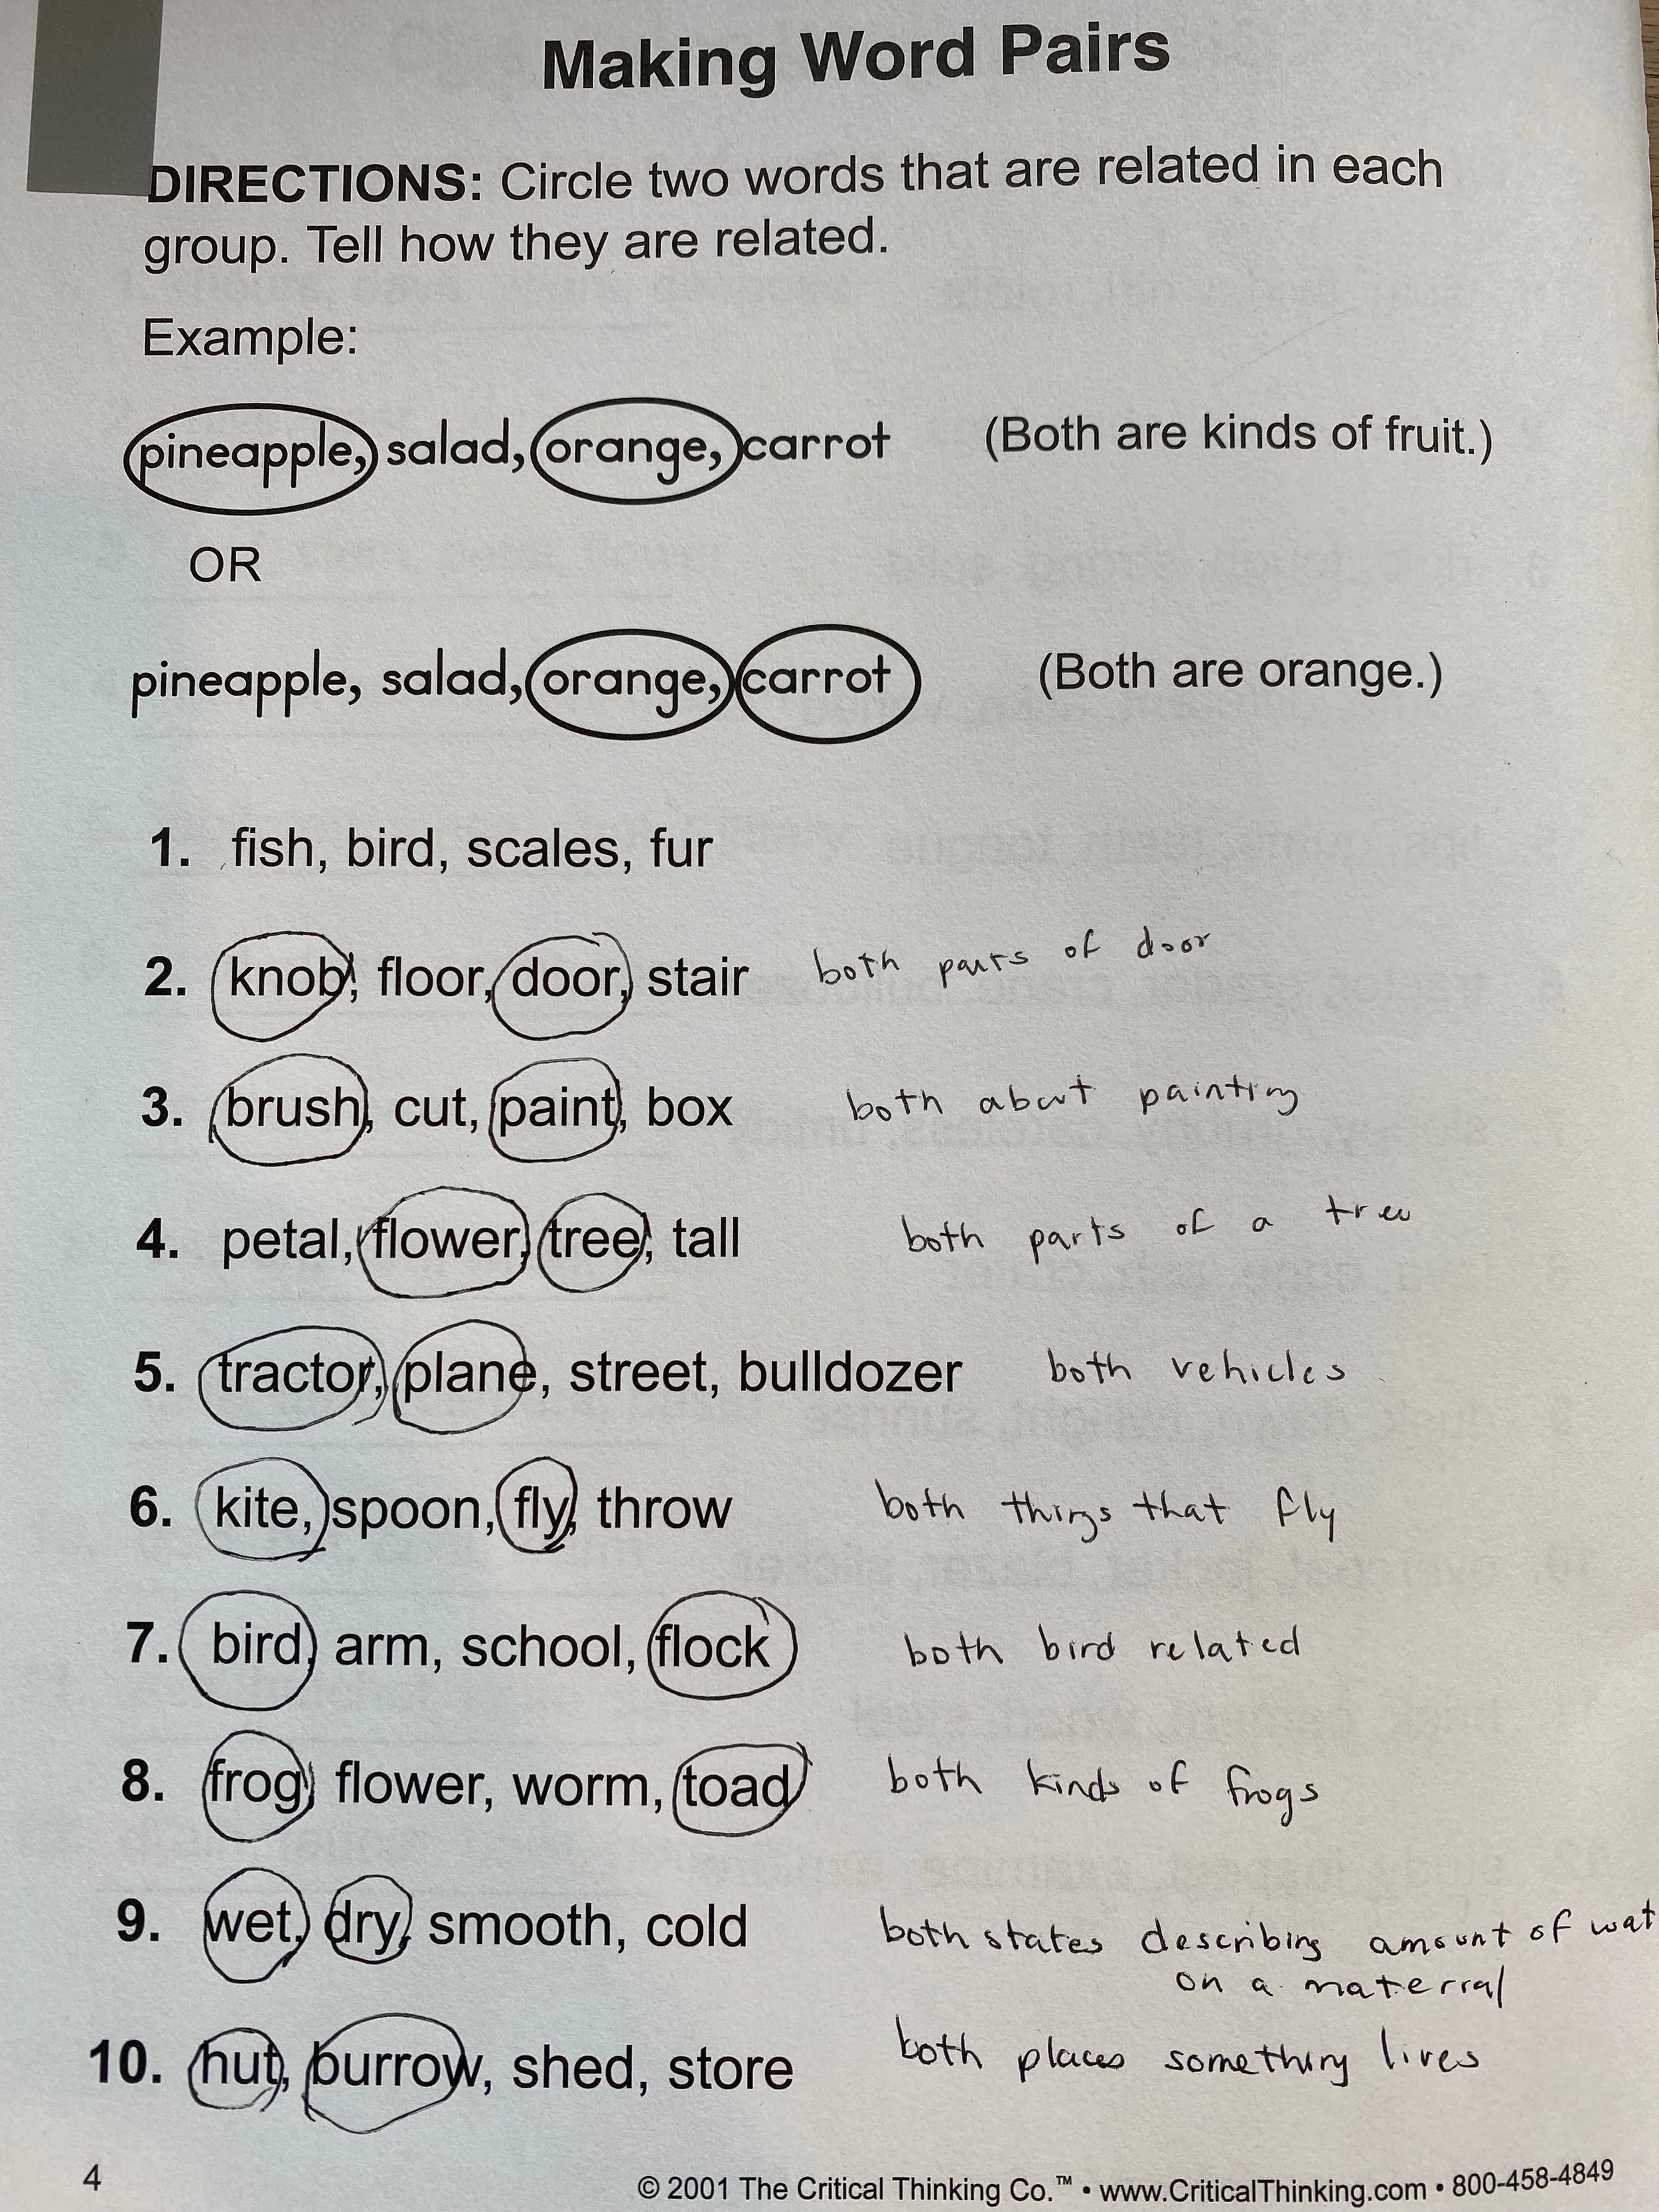 Making Word Pairs
DIRECTIONS: Circle two words that are related in each
group. Tell how they are related.
Example:
pineapple, salad, orange, carrot (Both are kinds of fruit.)
OR
pineapple, salad, orange, carrot (Both are orange.)
1. fish, bird, scales, fur
2. knob, floor, door, stair both parts of door
3. brush, cut, paint, box both about painting
4. petal, flower, tree, tall both parts of a tree
5. tractor, plane, street, bulldozer both vehicles
6. kite, spoon, fly, throw both things that fly
7. bird, arm, school, flock both bird related
8. frog, flower, worm, toad both kinds of frogs
9. wet, dry, smooth, cold both states describing amount of wat
on a material
10. hut, burrow, shed, store both places something lives
4 © 2001 The Critical Thinking Co.™ • www.CriticalThinking.com • 800-458-4849